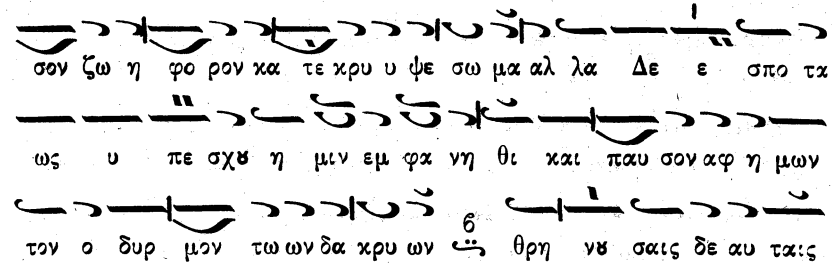 σον ζω η φο ρον κα τε κρυ υ ψε σω μα αλ λα Δε ε σπο τα
ως υ πε σχȣ η μιν εμ φα νη θι και παυ σον αφ η μων
τον ο δυρ μον τω ων δα κρυ ων θρη νȣ σαις δε αυ ταις